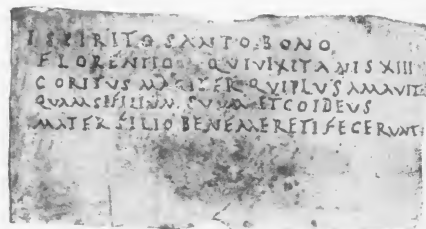 ISPIRITO SANTO BONO
FLORENTIO QVI VIXIT ANIS XIII
CORITVS MAGITER QVI PLVS AMAVIT
QVAM SI FILIVM SVVM ET COIDEVS
MATER FILIO BENEMERETI FECERVNT